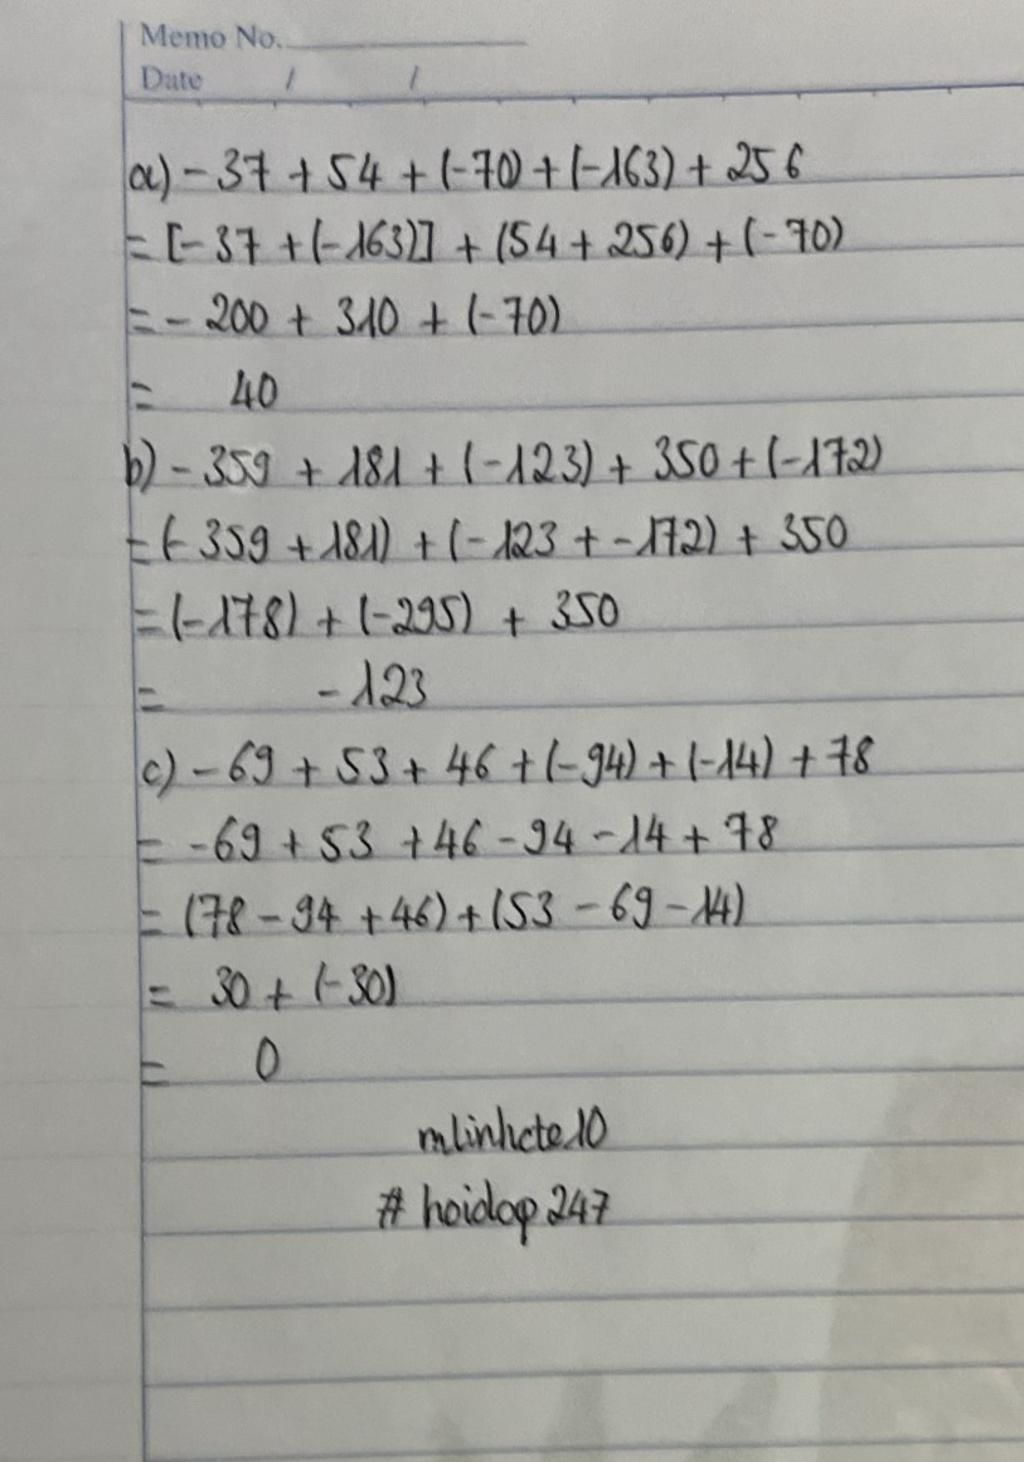 Memo No.
Date / /
a) - 37 + 54 + (-70) + (-163) + 256
= [-37 + (-163)] + (54 + 256) + (-70)
= - 200 + 310 + (-70)
= 40
b) - 359 + 181 + (-123) + 350 + (-172)
= (- 359 + 181) + (-123 + -172) + 350
= (-178) + (-295) + 350
= -123
c) - 69 + 53 + 46 + (-94) + (-14) + 78
= -69 + 53 + 46 - 94 - 14 + 78
= (78 - 94 + 46) + (53 - 69 - 14)
= 30 + (-30)
= 0
mlinhcte10
# hoidap 247